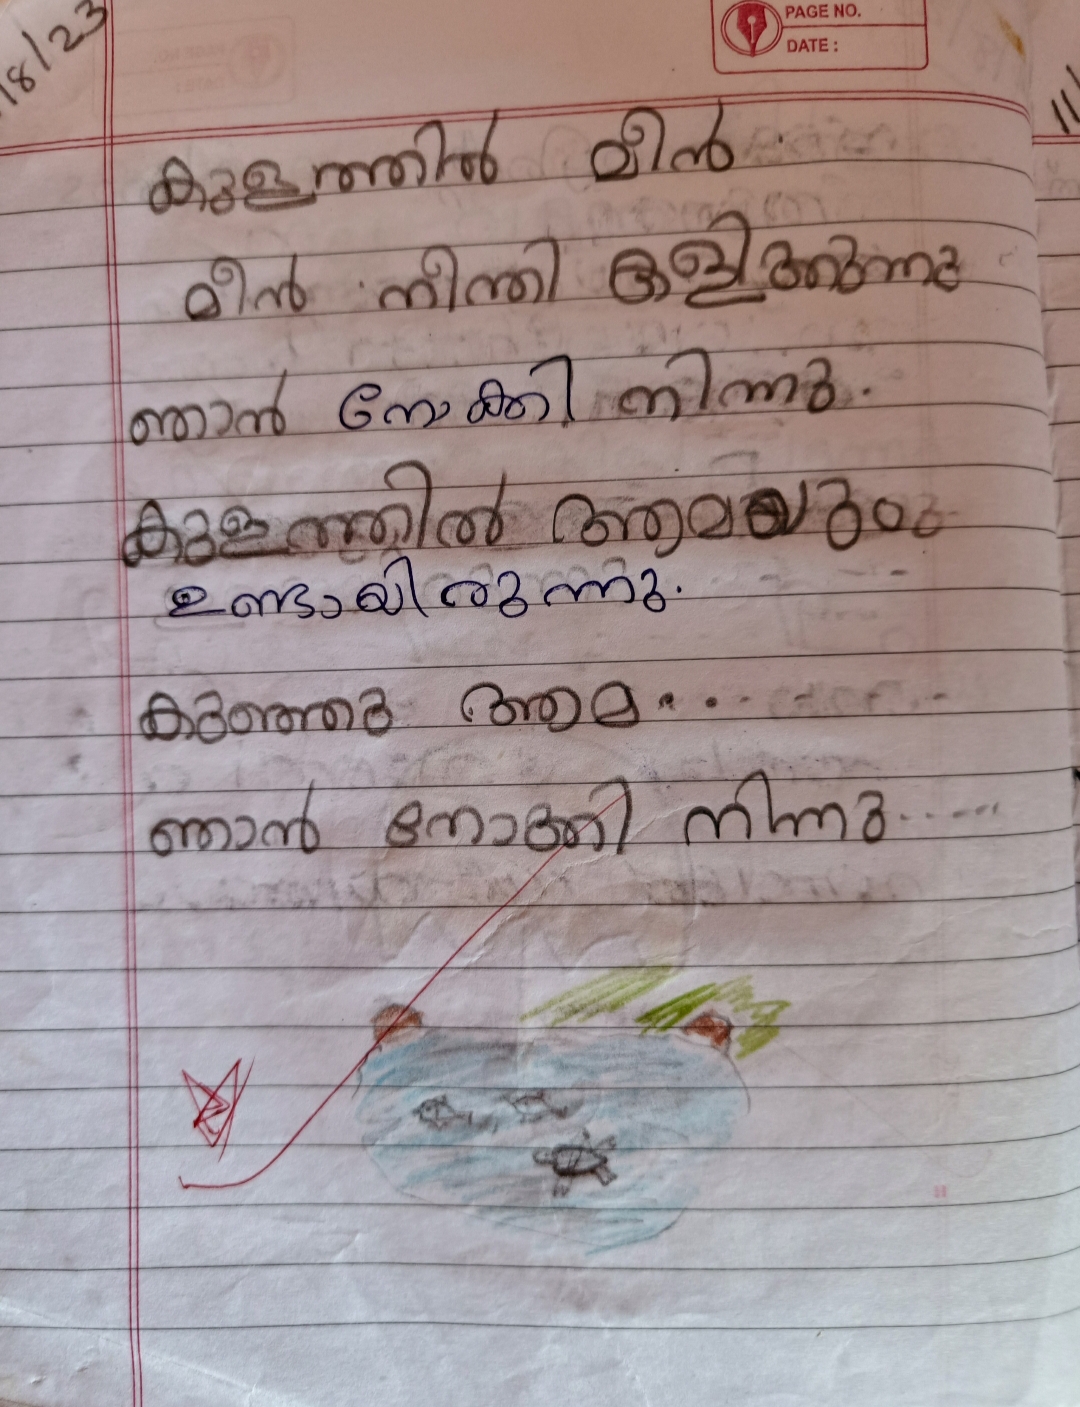 /8/23
PAGE NO.
DATE :
11/
കുളത്തിൽ മീൻ
മീൻ നീന്തി കളിക്കുന്നു
ഞാൻ നോക്കി നിന്നു.
കുളത്തിൽ ആമയും
ഉണ്ടായിരുന്നു.
കുഞ്ഞു ആമ...
ഞാൻ നോക്കി നിന്നു.....